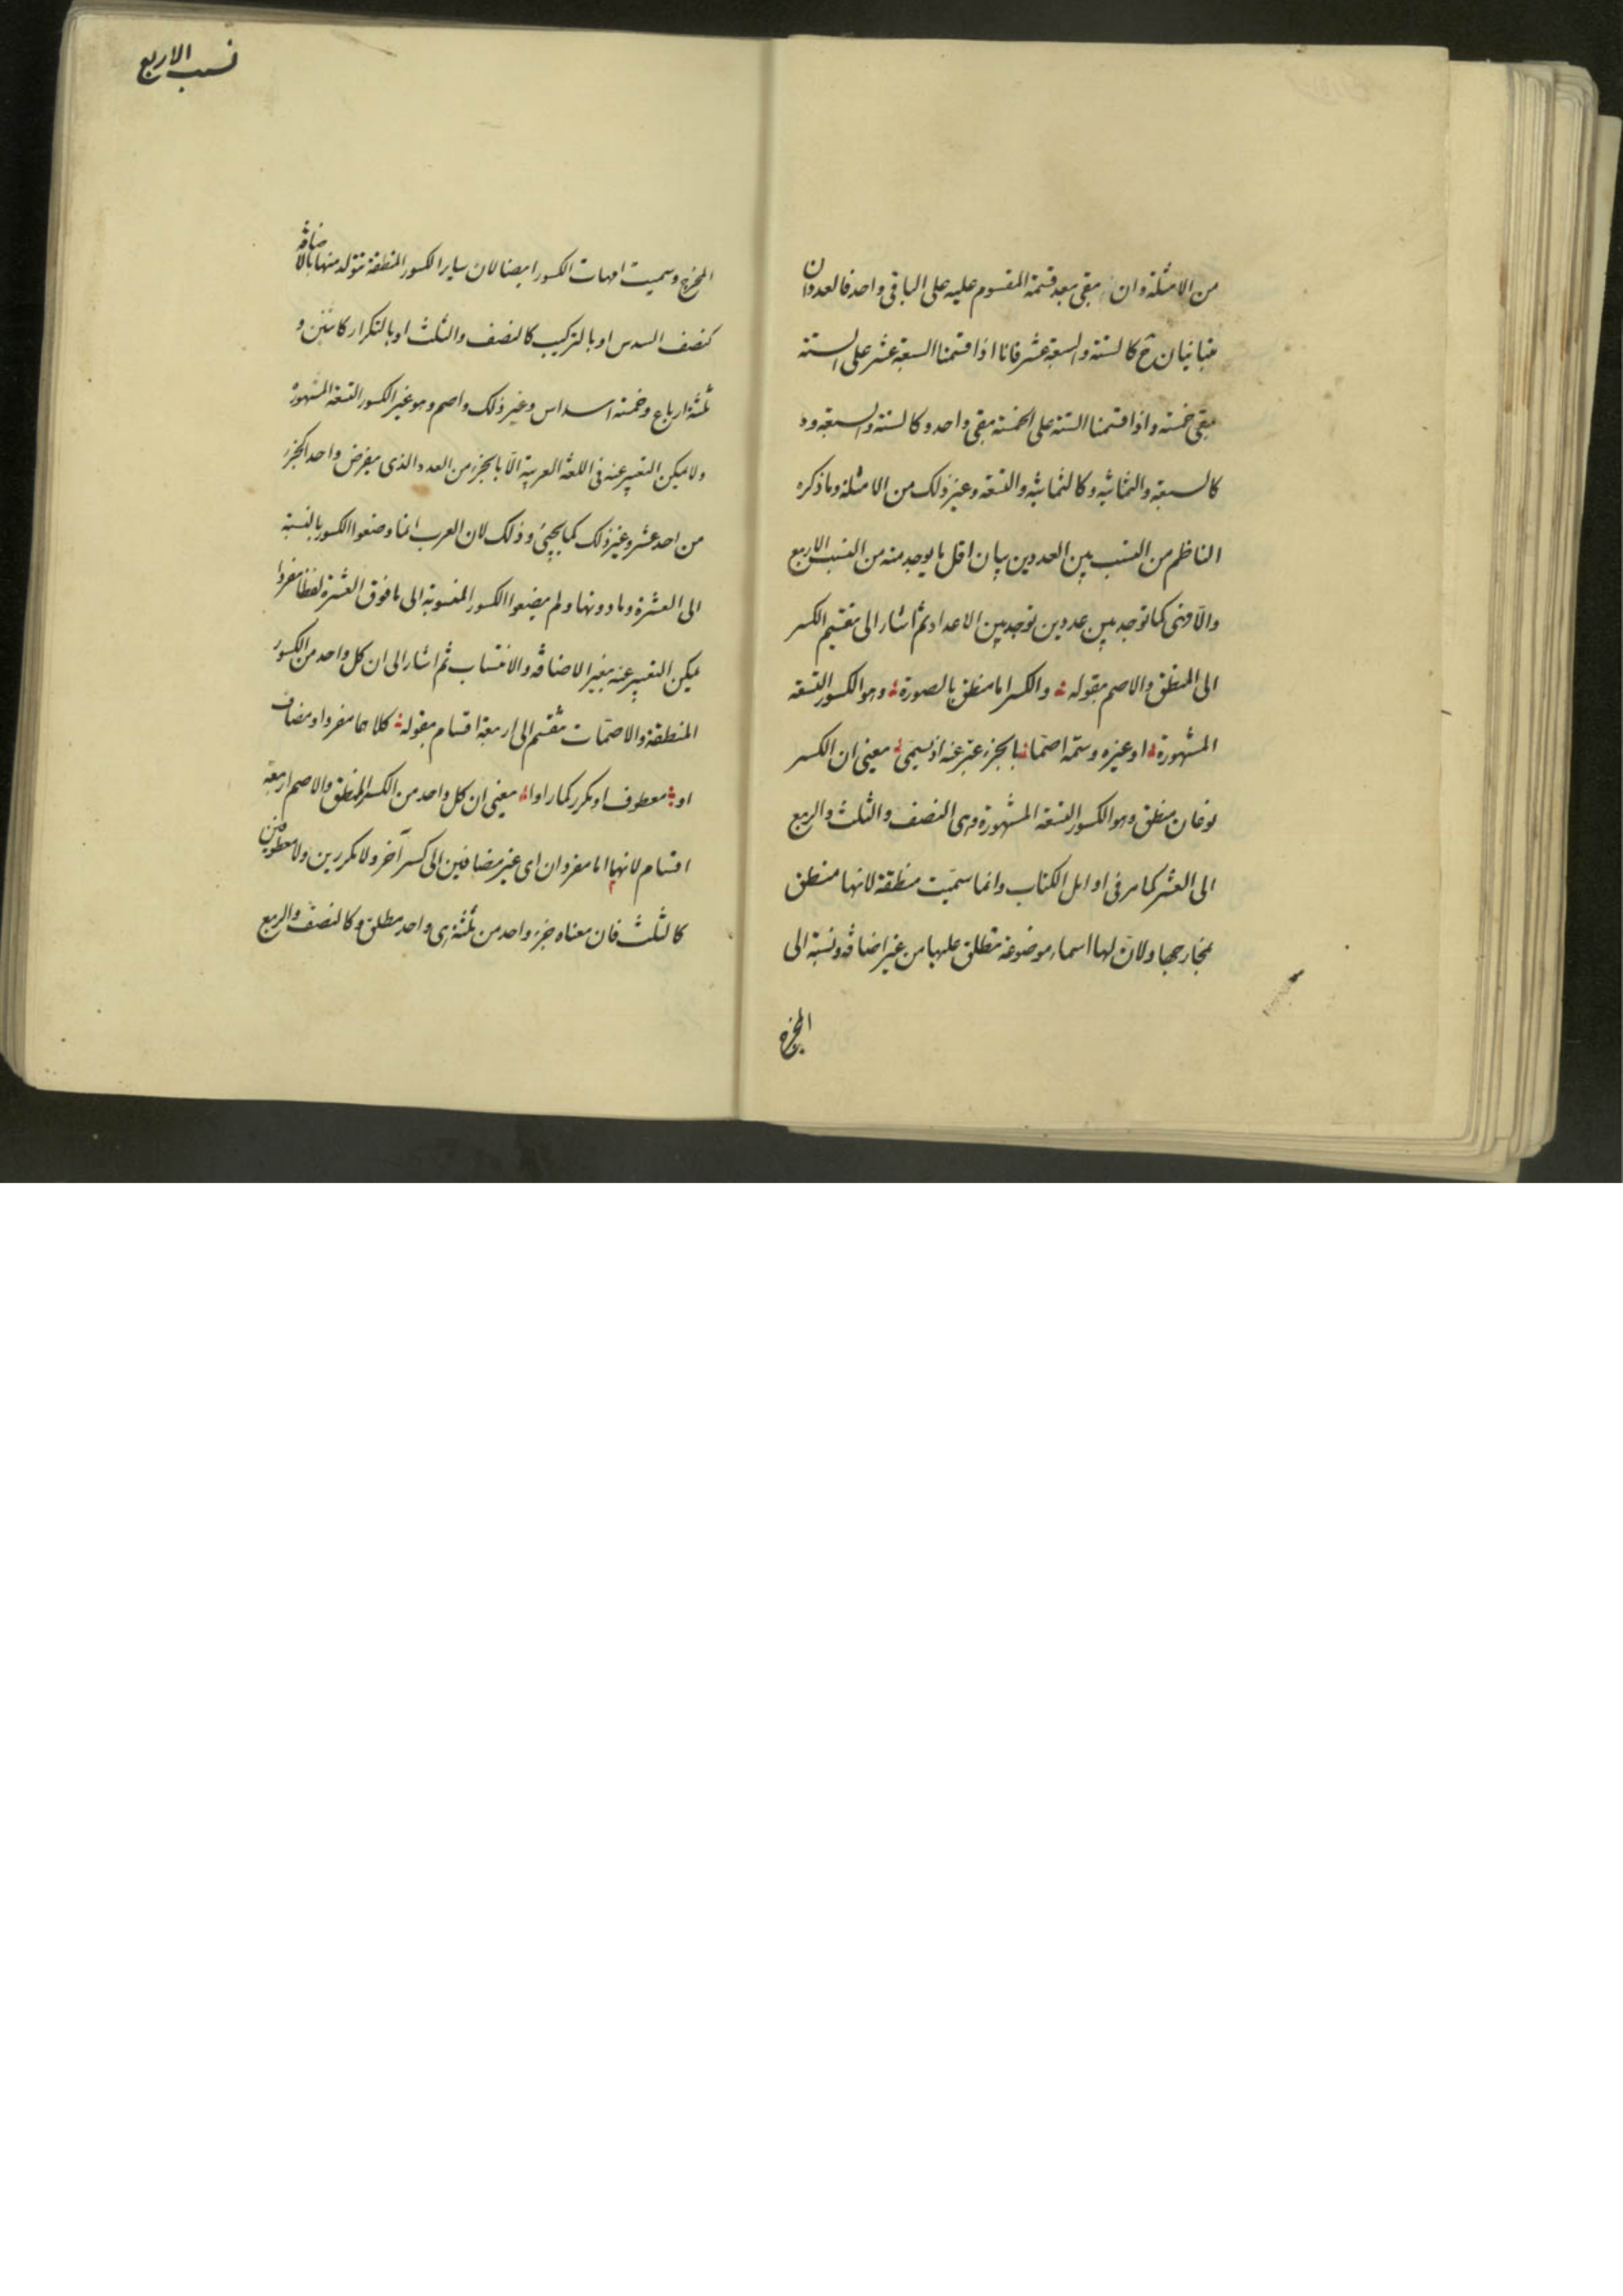 من الامثلة وان بقى بعد قسمة المقسوم عليه على الباقى واحد فالعددان
متباينان ح كالستة والسبعة عشر فانا اذا قسمنا السبعة عشر على الستة
بقى خمسة واذا قسمنا الستة على الخمسة بقى واحد وكالستة والسبعة و
كالسبعة والثمانية وكالثمانية والتسعة وغير ذلك من الامثلة وما ذكره
الناظم من النسب بين العددين بيان اقل ما يوجد منه من النسب الاربع
والا فهى كما توجد بين عددين توجد بين الاعداد ثم اشار الى تقسيم الكسر
الى المنطق والاصم بقوله والكسر اما منطق بالصورة وهو الكسور التسعة
المشهورة او غيره وسمه اصما بالجزء عبر عنه اذ يسمى يعنى ان الكسر
نوعان منطق وهو الكسور التسعة المشهورة وهى النصف والثلث والربع
الى العشر كما مر فى اوايل الكتاب وانما سميت منطقة لانها منطق
بمخارجها ولان لها اسماء موضوعة تطلق عليها من غير اضافة ونسبة الى
المخرج
نسب الاربع
المخرج وسميت امهات الكسور ايضا لان ساير الكسور المنطقة تتولد منها بالاضافة
كنصف السدس او بالتركيب كالنصف والثلث او بالتكرار كاثنين و
ثلثة ارباع وخمسة اسداس وغير ذلك واصم وهو غير الكسور التسعة المشهورة
ولا يمكن التعبير عنه فى اللغة العربية الا بالجزء من العدد الذى يفرض واحد الجزء
من احد عشر وغير ذلك كما يجيئ وذلك لان العرب انما وضعوا الكسور بالنسبة
الى العشرة وما دونها ولم يضعوا الكسور المنسوبة الى ما فوق العشرة لفظا مفردا
يمكن التعبير عنه بغير الاضافة والانتساب ثم اشار الى ان كل واحد من الكسور
المنطقة والاصمات تنقسم الى اربعة اقسام بقوله كلاهما مفردا ومضاف
او معطوف او مكرر كما راوا يعنى ان كل واحد من الكسر المنطق والاصم اربعة
اقسام لانهما اما مفردان اى غير مضافين الى كسر آخر ولا مكررين ولا معطوفين
كالثلث فان معناه جزء واحد من ثلثة هى واحد مطلق وكالنصف والربع